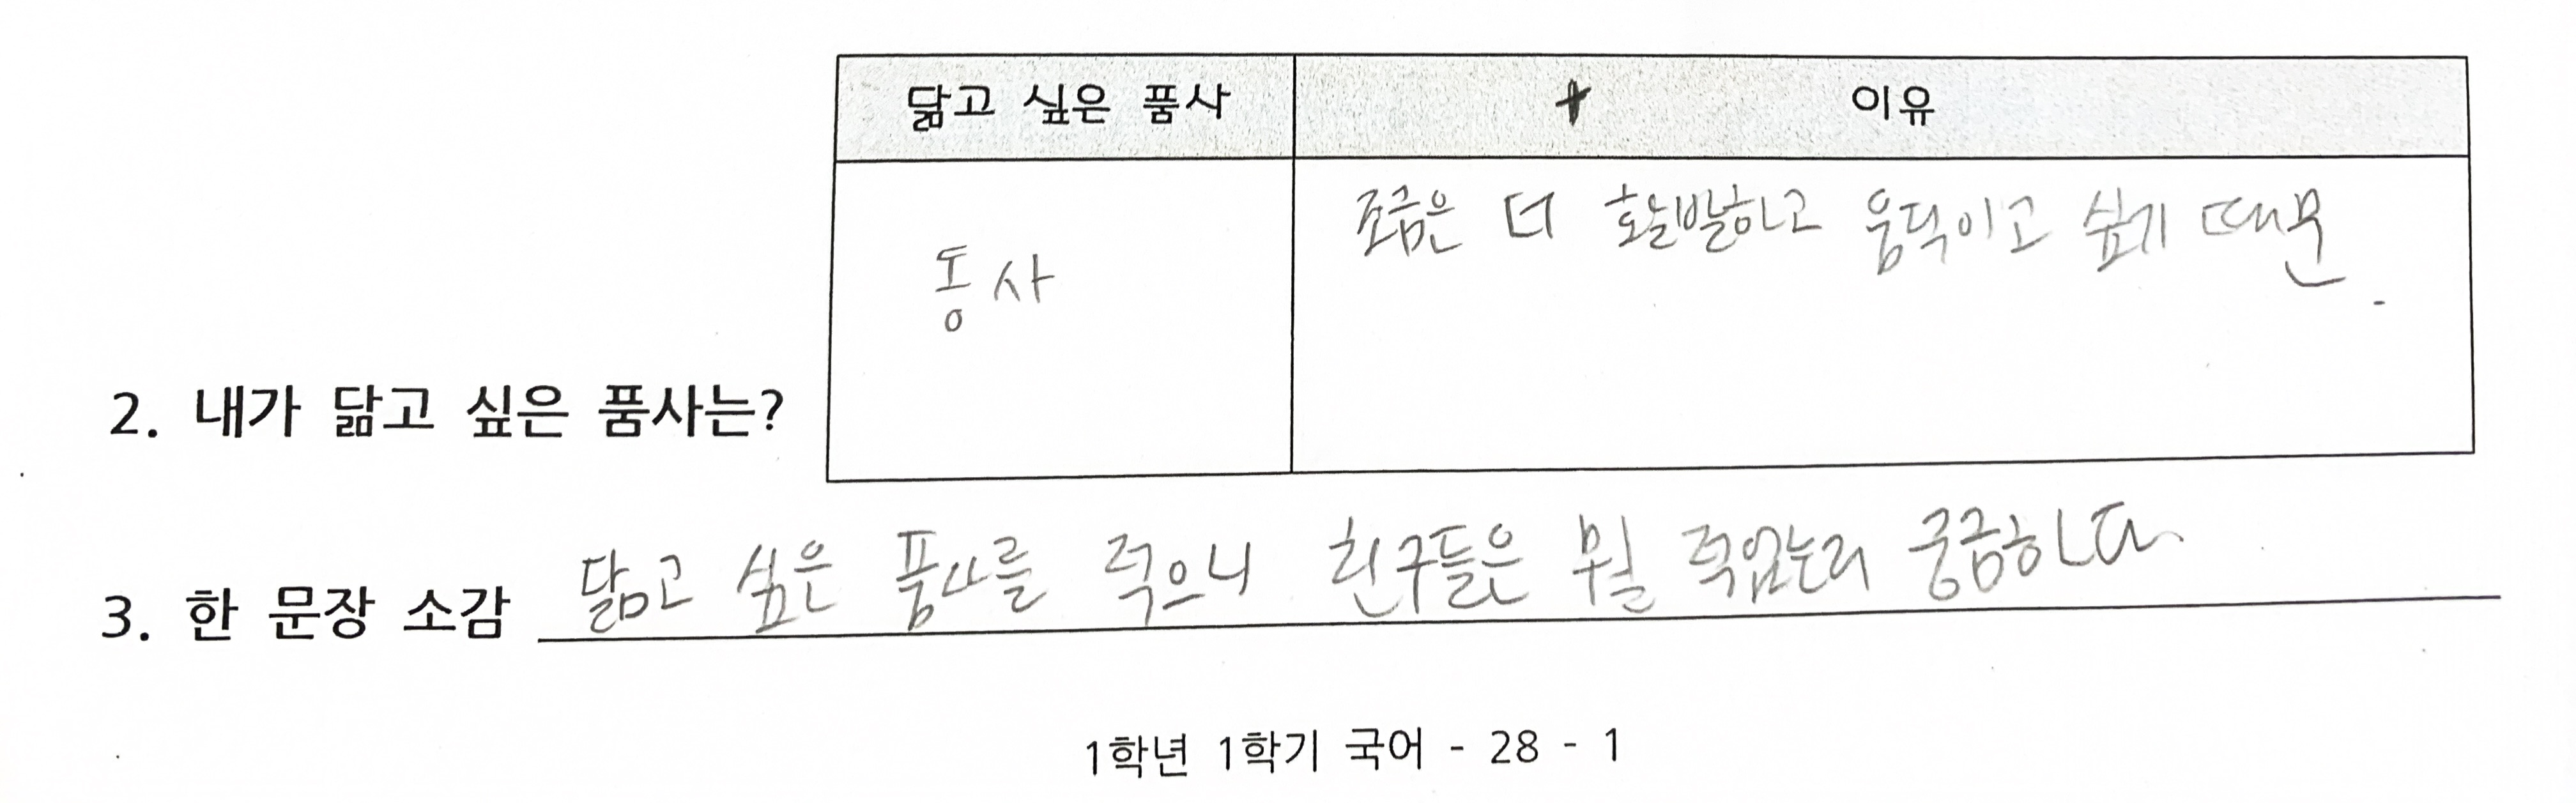 닮고 싶은 품사 이유
동사 조금은 더 활발하고 움직이고 싶기 때문.
2. 내가 닮고 싶은 품사는?
3. 한 문장 소감 닮고 싶은 품사를 적으니 친구들은 뭘 적었는지 궁금하다
1학년 1학기 국어 - 28 - 1